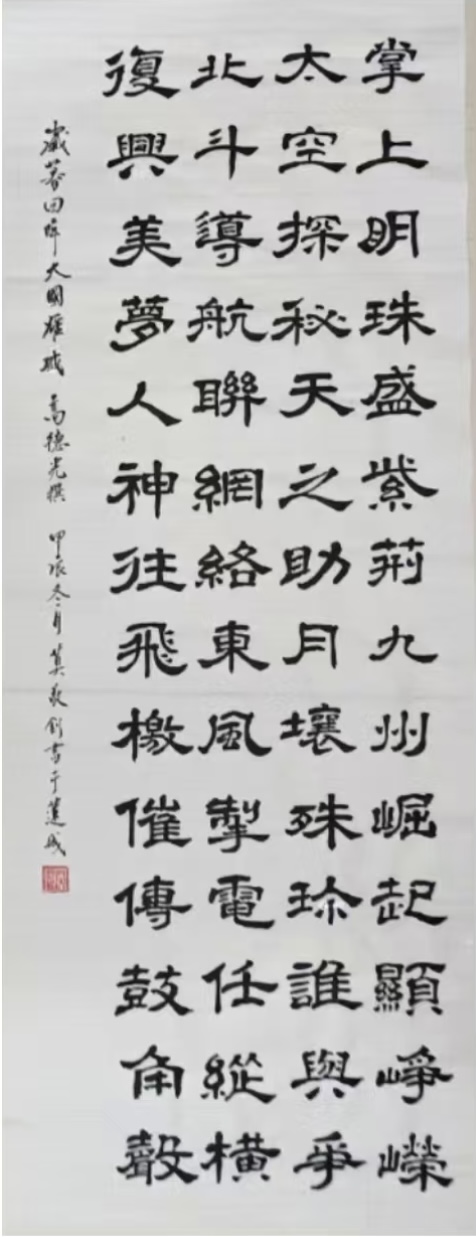 掌上明珠盛紫荊九州崛起顯崢嶸
太空探秘天之助月壤殊珍誰與爭
北斗導航聯網絡東風掣電任縱橫
復興美夢人神往飛檄催傳鼓角聲
歲暮回眸大國雄城 高德光撰 甲辰冬月 書于蓮城